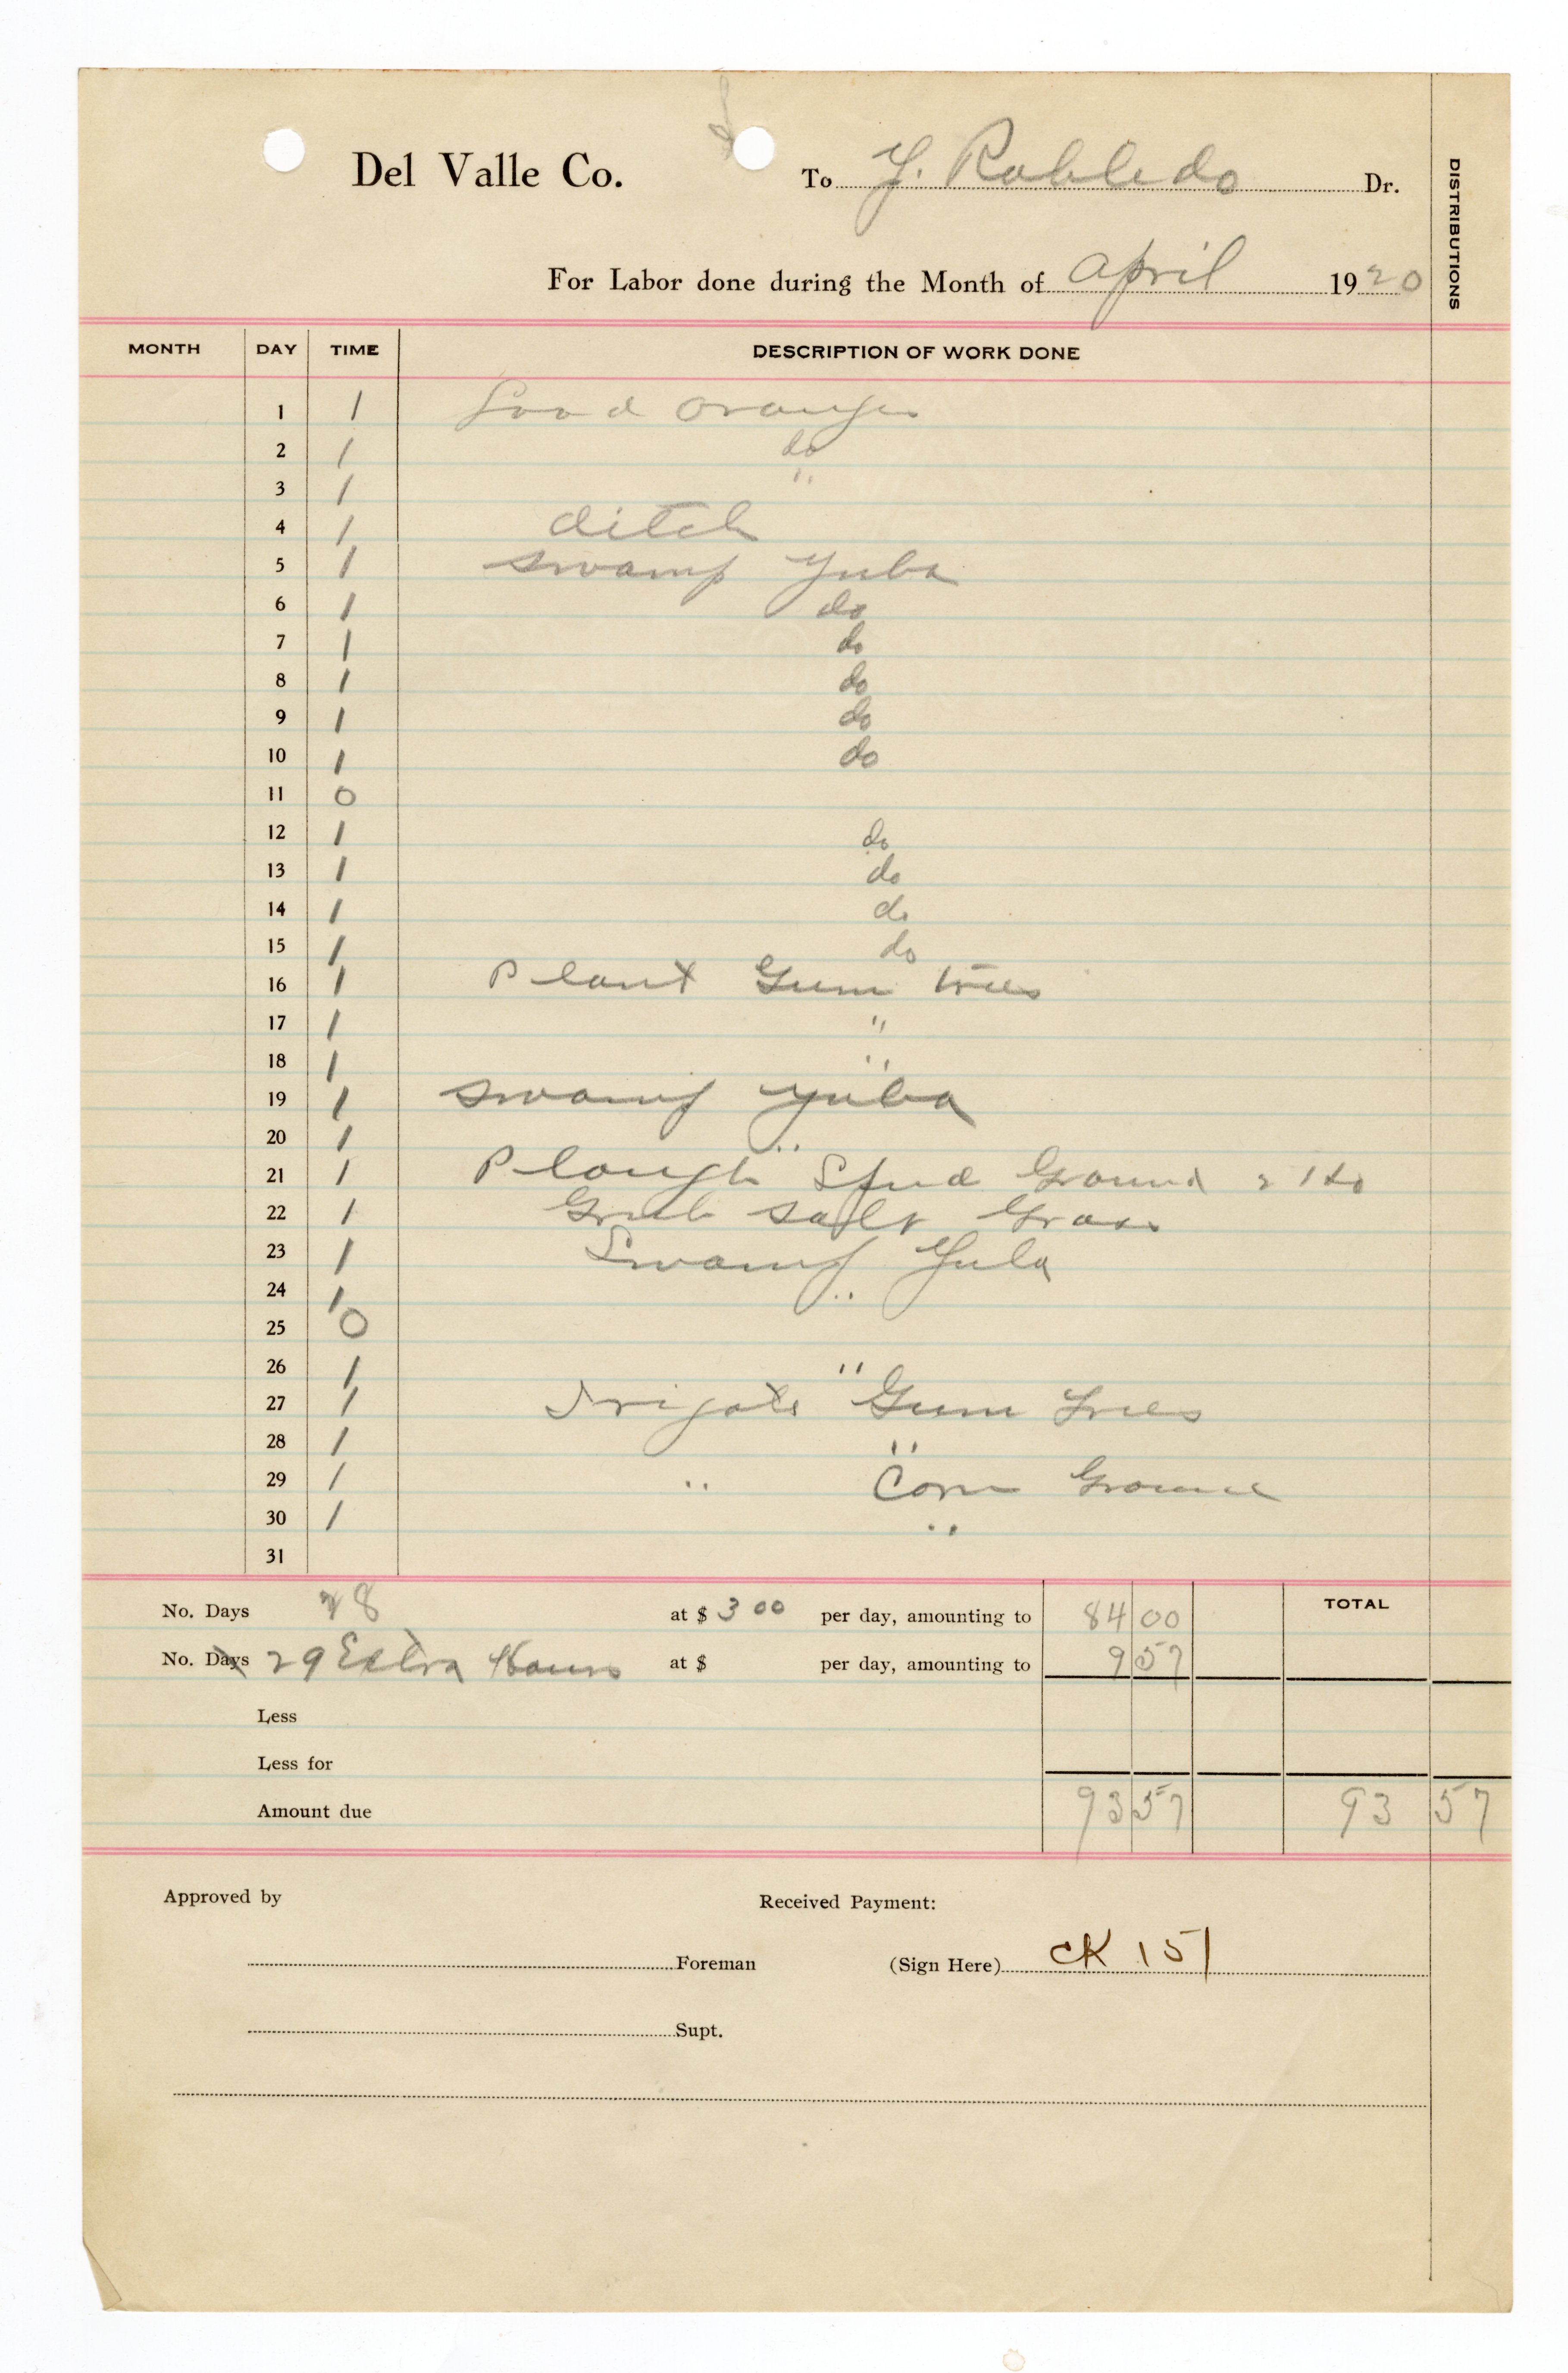 Del Valle Co. To Y. Robledo Dr.
DISTRIBUTIONS
For Labor done during the Month of April 1920
MONTH DAY TIME DESCRIPTION OF WORK DONE
1 1 Load oranges
2 1 do
3 1 "
4 1 ditch
5 1 swamp Yuba
6 1 do
7 1 do
8 1 do
9 1 do
10 1 do
11 0
12 1 do
13 1 do
14 1 do
15 1 do
16 1 Plant Gum trees
17 1 "
18 1 "
19 1 swamp yuba
20 1 "
21 1 Plough Spud Ground
22 1 Grub salt Grass
23 1 Swamp Yuba
24 1 "
25 0
26 1 "
27 1 Irigate Gum Trees
28 1 "
29 1 " Corn Ground
30 1 "
31
No. Days 28 at $ 3 00 per day, amounting to 84 00 TOTAL
No. Days 29 Extra Hours at $ per day, amounting to 9 57
Less
Less for
Amount due 93 57 93 57
Approved by Received Payment:
Foreman (Sign Here) CK 151
Supt.